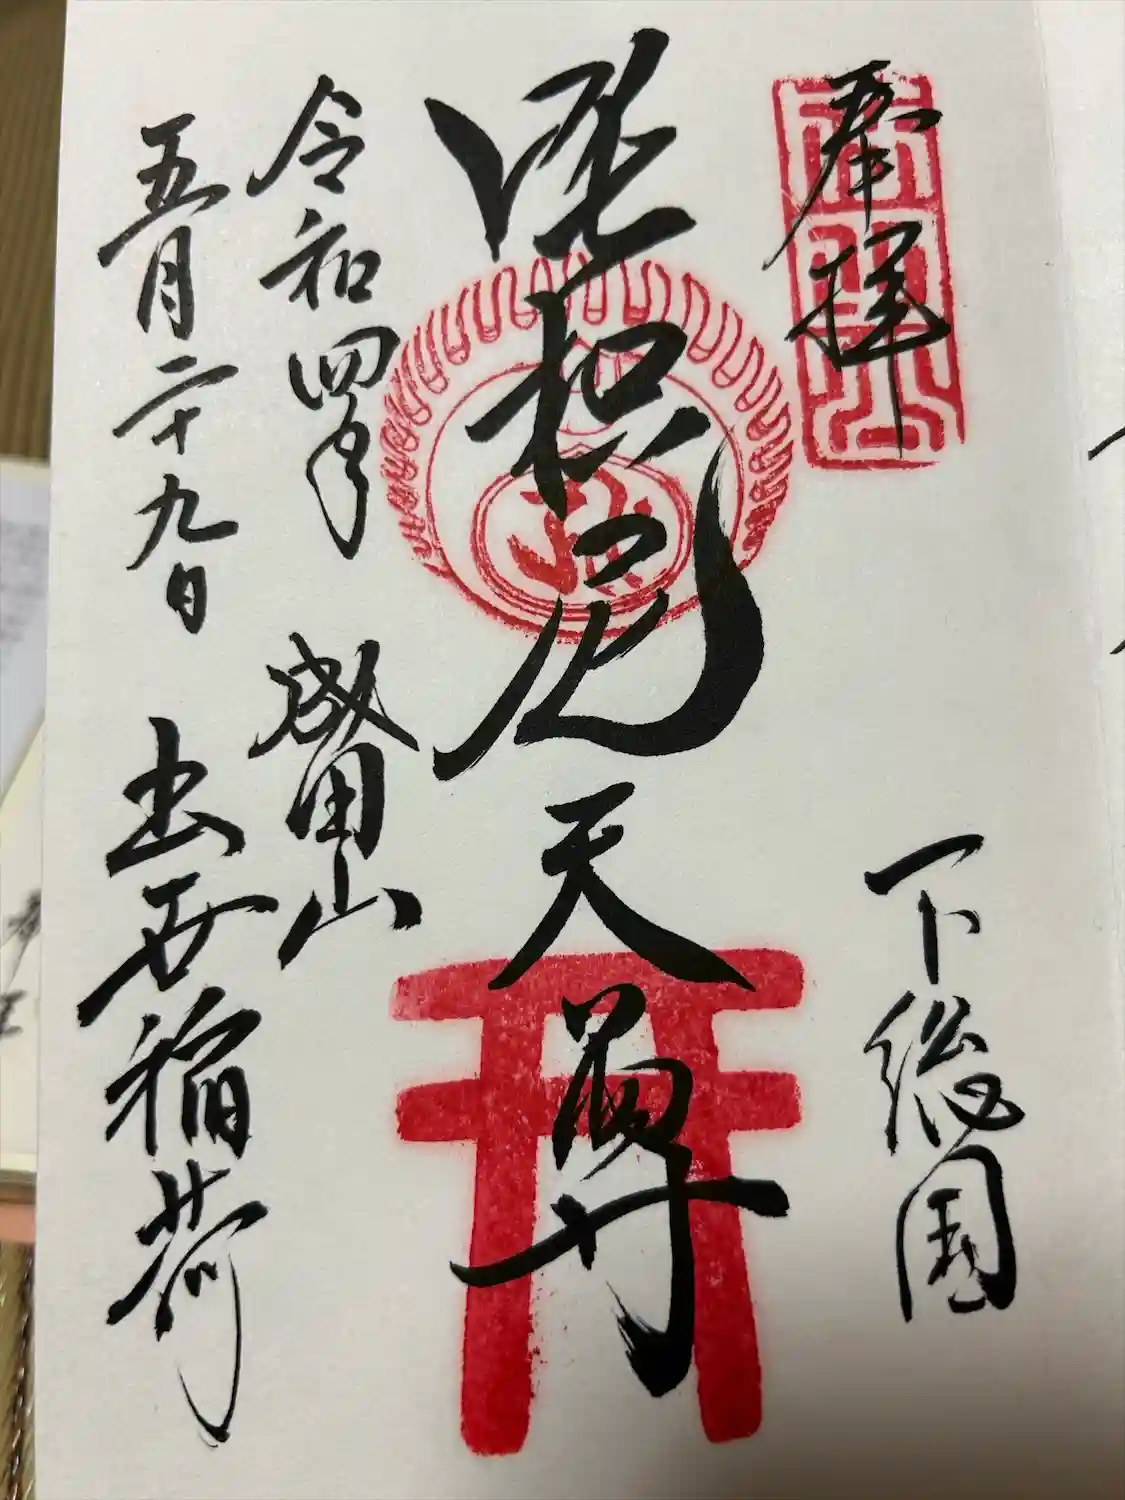 奉拝
下総国
荼枳尼天尊
令和四年
成田山
五月二十九日
出世稲荷